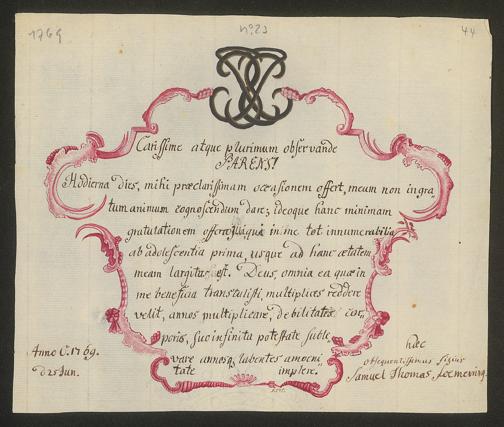 1769
no 23
44
Carissime atque plurimum observande
PARENS!
Hodierna dies, mihi præclarissimam occasionem offert, meum non ingra-
tum animum cognoscendum dare; ideoque hanc minimam
gratulationem offero, in me tot innumerabilia
ab adolescentia prima, usque ad hanc ætatem
meam largitus est. Deus, omnia ea quæ in
me beneficia transtulisti, multiplices reddere
velit, annos multiplicare, debilitatem cor,
poris, suo infinita potestate suble,
vare annosq labentes amoeni
tate implere.
Anno C. 1769.
D 25 Jun.
hæc
obsequentissimus filius
Samuel Thomas, Soemering.